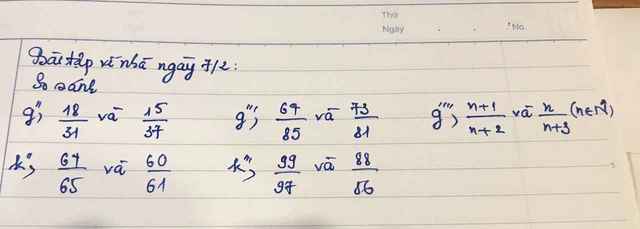 Thứ
Ngày . . No.
Bài tập về nhà ngày 7/2:
So sánh
g'', 18/31 và 15/37 g''', 67/85 và 73/81 g'''', n+1/n+2 và n/n+3 (n∈N)
k', 64/65 và 60/61 k'', 99/97 và 88/86